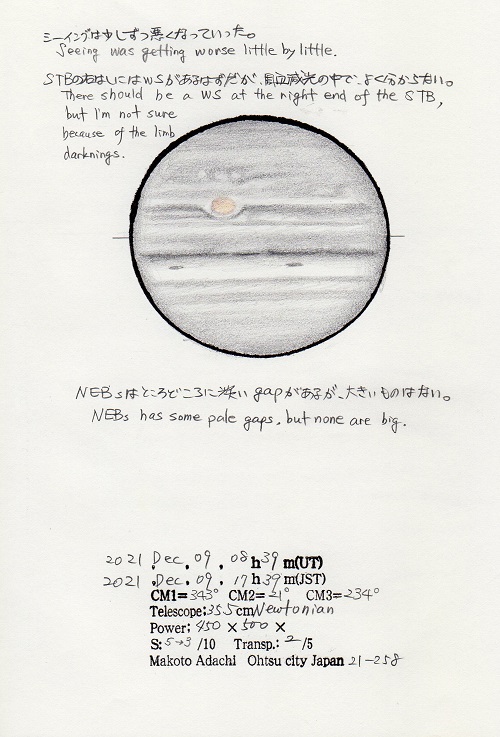 シーイングは少しずつ悪くなっていった。
Seeing was getting worse little by little.
STBの右はしにはWSがあるはずだが、周辺減光の中で、よく分からない。
There should be a WS at the right end of the STB,
but I'm not sure
because of the limb
darknings.
NEBsはところどころに淡い gapがあるが、大きいものはない。
NEBs has some pale gaps, but none are big.
2021 Dec. 09, 08h39m(UT)
2021 Dec. 09, 17h39m(JST)
CM1=343° CM2=21° CM3=234°
Telescope;35.5cm Newtonian
Power; 450 × 500 ×
S: 5→3 /10 Transp.: 2 /5
Makoto Adachi Ohtsu city Japan 21-258